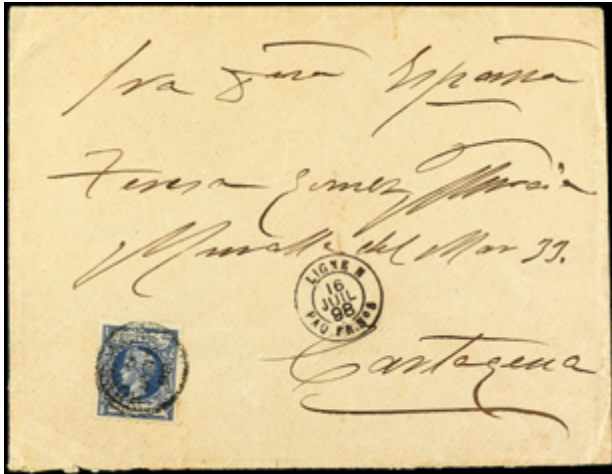 Sra Dña España
Teresa Gomez Murcia
Muralla del Mar 39.
LIGNE N
16
JUIL
98
PAQ. FR. Nº 8
Cartagena